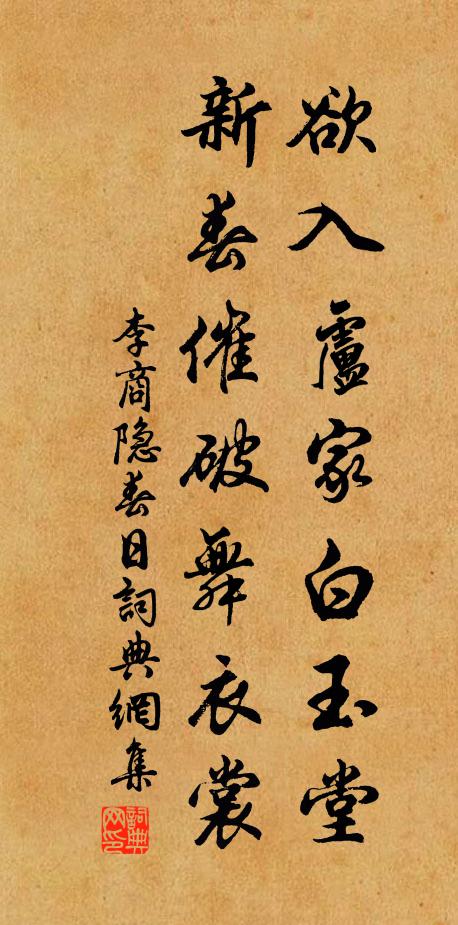 欲入盧家白玉堂
新春催破舞衣裳
李商隐春日詞典網集
詞典网印